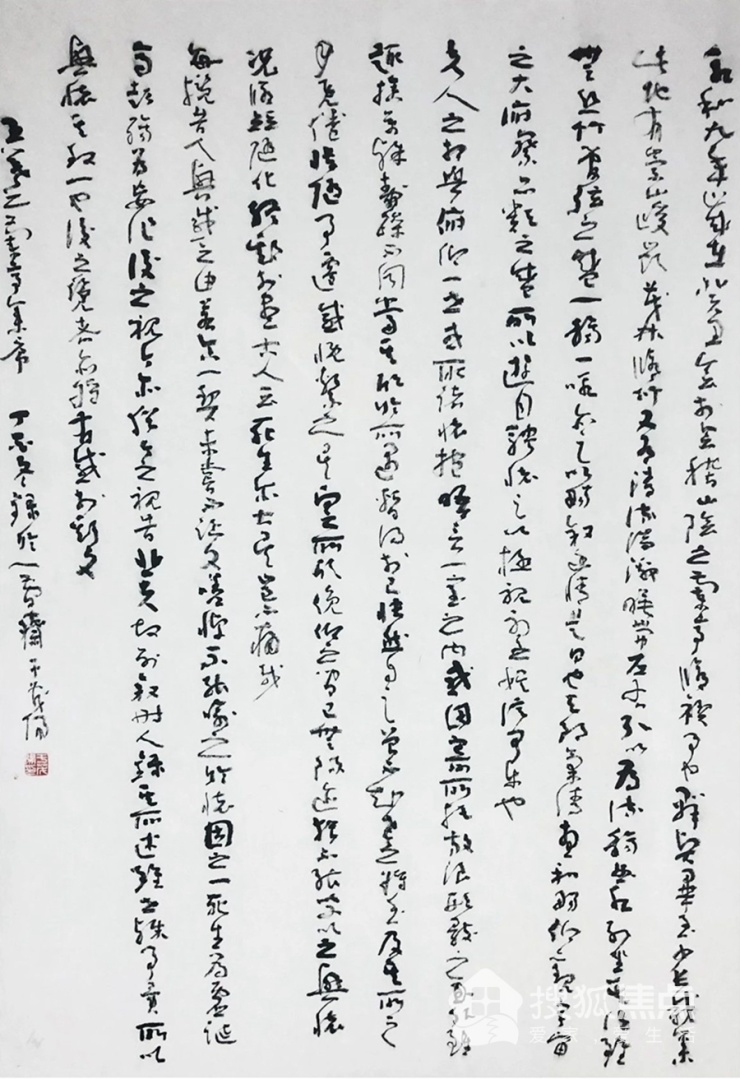 永和九年歲在癸丑會於會稽山陰之蘭亭脩禊事也群賢畢至少長咸集
此地有崇山峻嶺茂林脩竹又有清流湍激映帶左右引以為流觴曲水列坐其次雖
無絲竹管弦之盛一觴一詠亦足以暢敘幽情是日也天朗氣清惠風和暢仰觀宇宙
之大俯察品類之盛所以遊目騁懷足以極視聽之娛信可樂也
夫人之相與俯仰一世或取諸懷抱晤言一室之內或因寄所託放浪形骸之外雖
趣捨萬殊靜躁不同當其欣於所遇暫得於己快然自足曾不知老之將至及其所之
既倦情隨事遷感慨繫之矣向之所欣俛仰之間已為陳迹猶不能不以之興懷
況脩短隨化終期於盡古人云死生亦大矣豈不痛哉
每攬昔人興感之由若合一契未嘗不臨文嗟悼不能喻之於懷固知一死生為虛誕
齊彭殤為妄作後之視今亦猶今之視昔悲夫故列敘時人錄其所述雖世殊事異所以
興懷其致一也後之覽者亦將有感於斯文
王羲之蘭亭集序 丁酉冬錄於一齋
搜狐焦点
爱家 爱生活